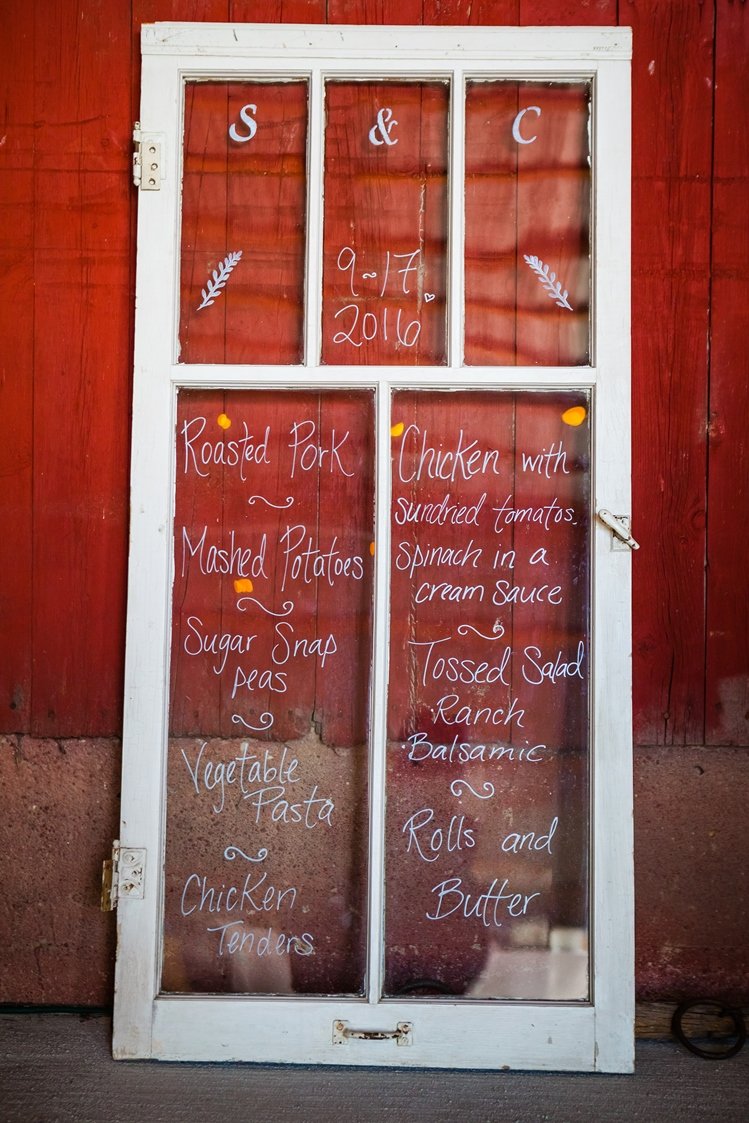 S & C
9-17
2016
Roasted Pork
Mashed Potatoes
Sugar Snap
peas
Vegetable
Pasta
Chicken
Tenders
Chicken with
sundried tomatos.
spinach in a
cream sauce
Tossed Salad
Ranch
Balsamic
Rolls and
Butter